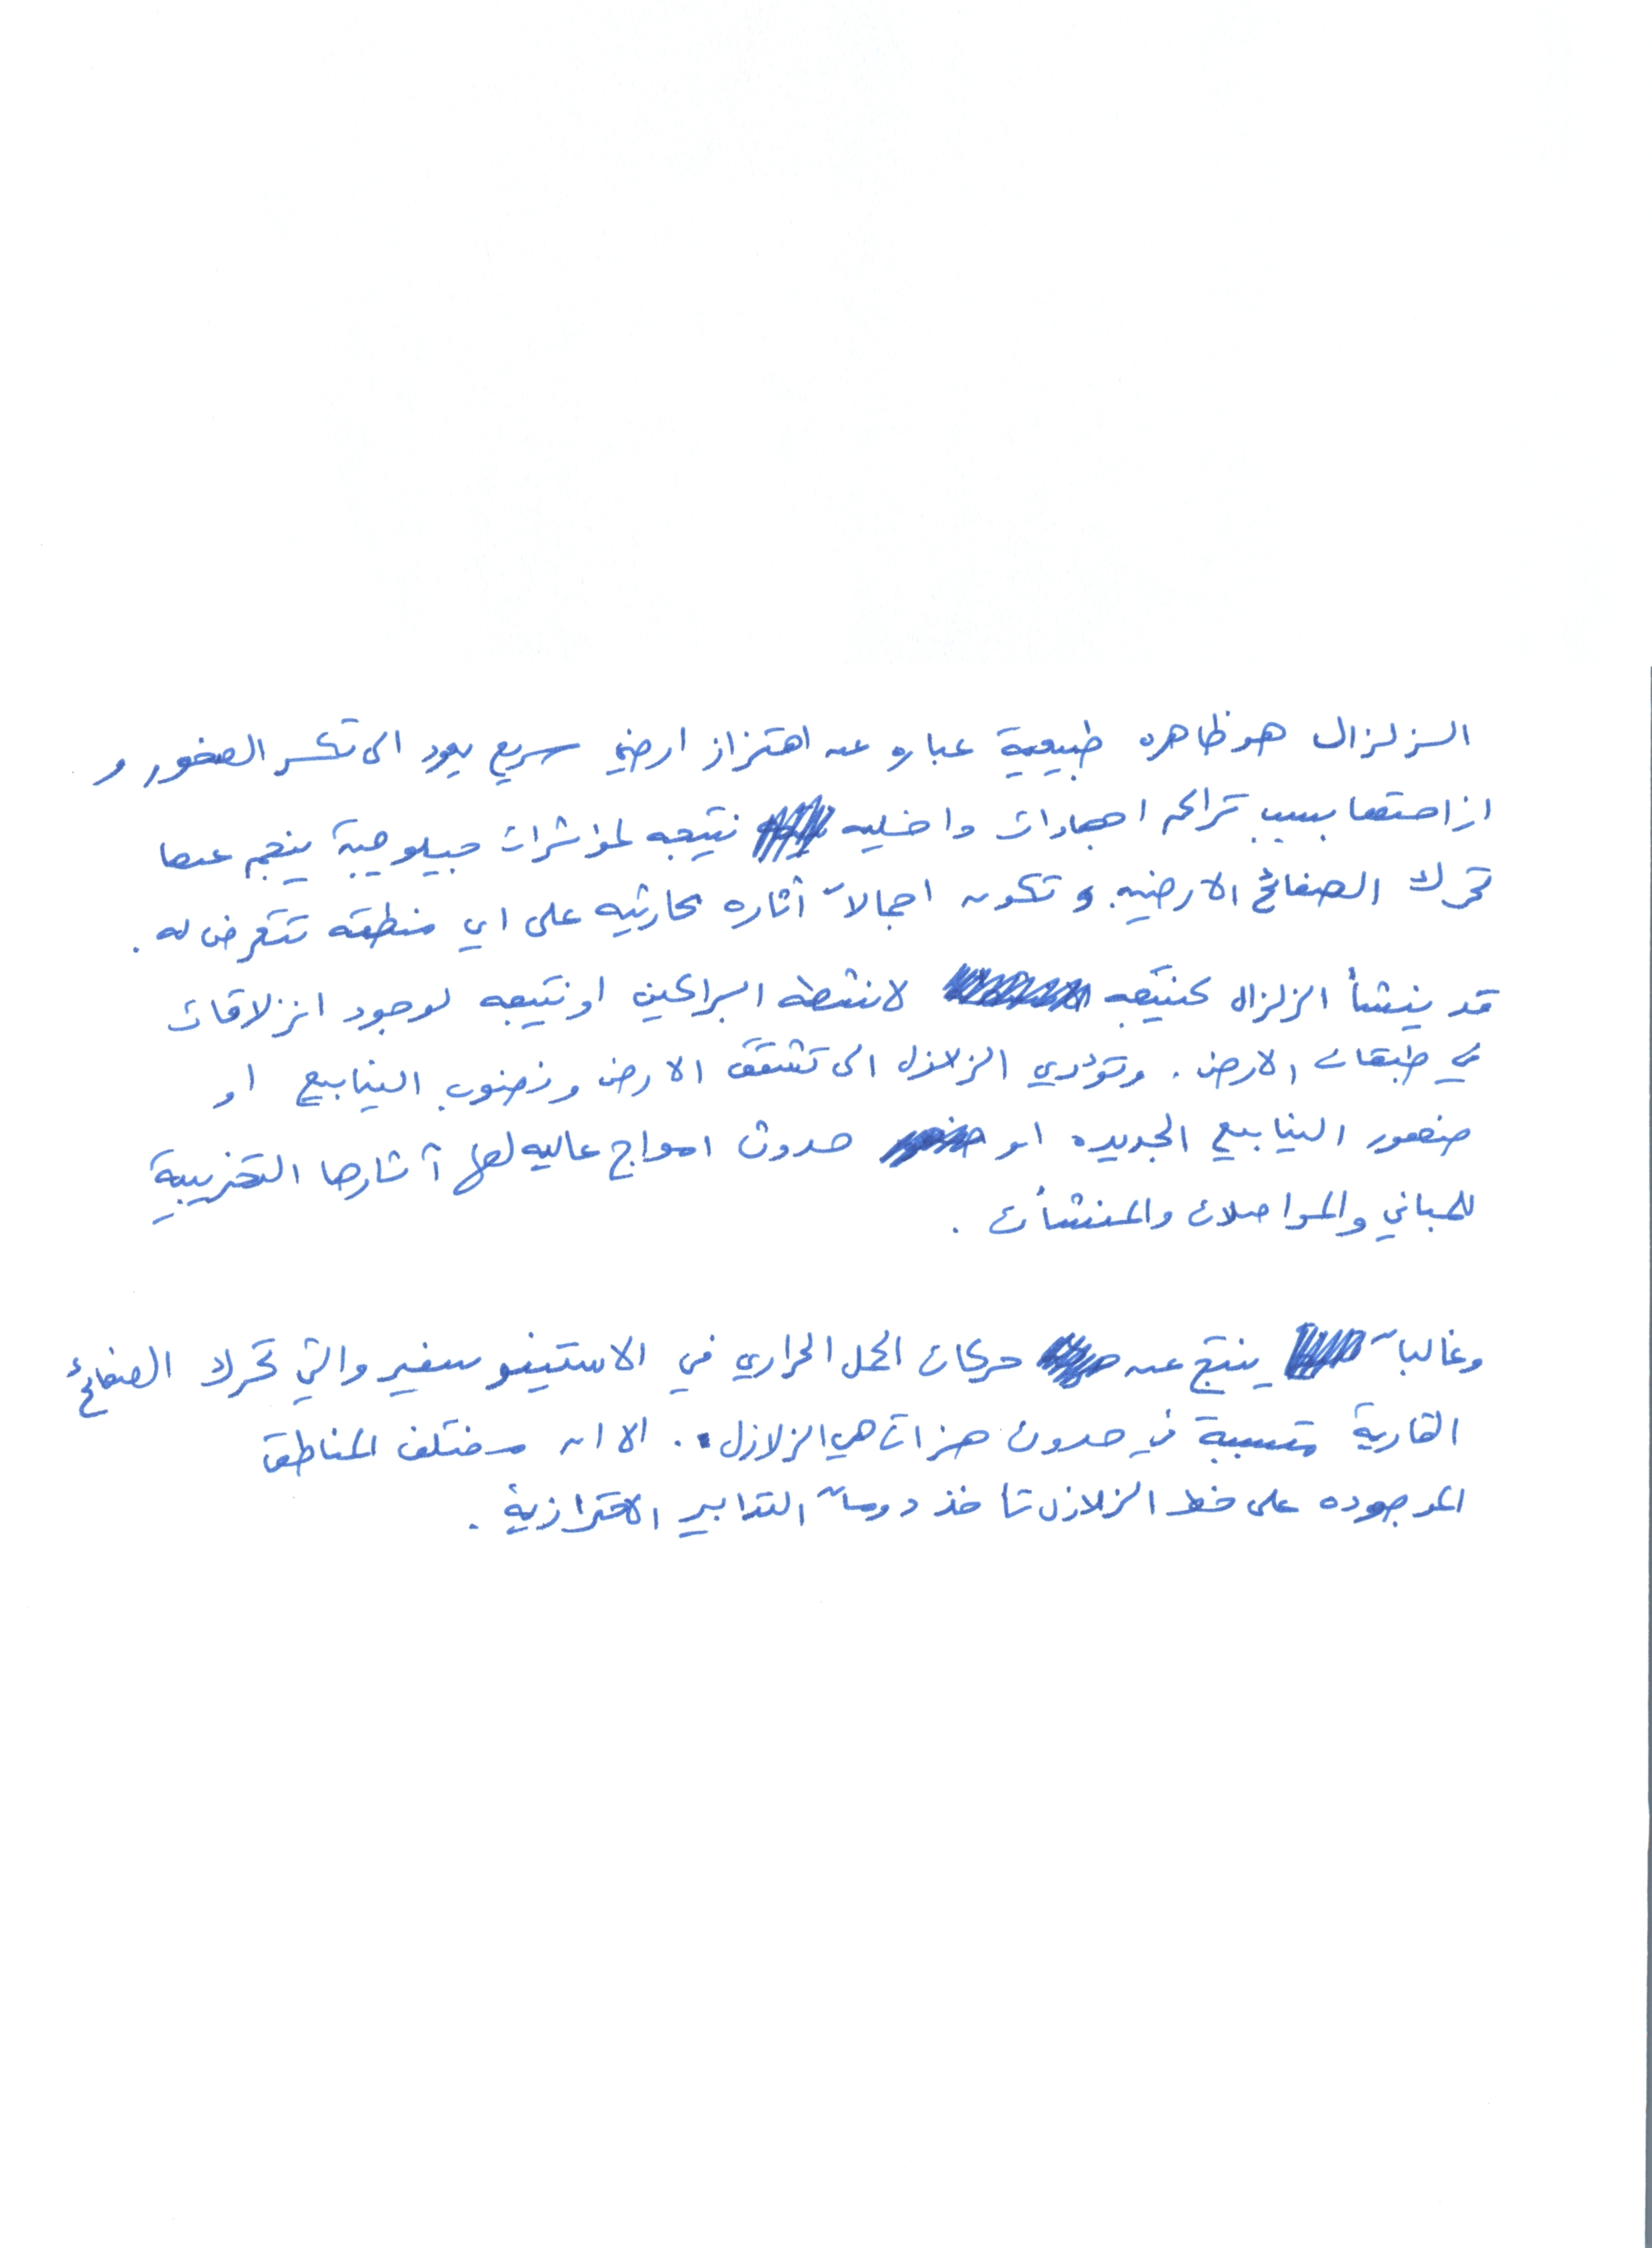 الزلزال هو ظاهره طبيعية عباره عن اهتزاز ارضي سريع يعود الى تكسر الصخور و
ازاحتها بسبب تراكم اجهادات داخليه نتيجه لمؤثرات جيلوجية ينجم عنها
تحرك الصفائح الارضيه و تكون اجمالاً آثاره كارثيه على اي منطقه تتعرض له .
قد ينشأ الزلزال كنتيجه لانشطه البراكين او نتيجه لوجود انزلاقات
في طبقات الارض . وتؤدي الزلازل الى تشقق الارض ونضوب الينابيع او
ضهور الينابيع الجديده او حدوث امواج عاليه لها آثارها التخريبية
للمباني والمواصلات والمنشأت .
وغالباً ينتج عن حركات الحمل الحراري في الاستينوسفير والتي تحرك الصفائح
القارية متسببة في حدوث هزات هي الزلازل . الا ان مختلف المناطق
الموجوده على خط الزلازل تاخذ دوماً التدابير الاحترازية .